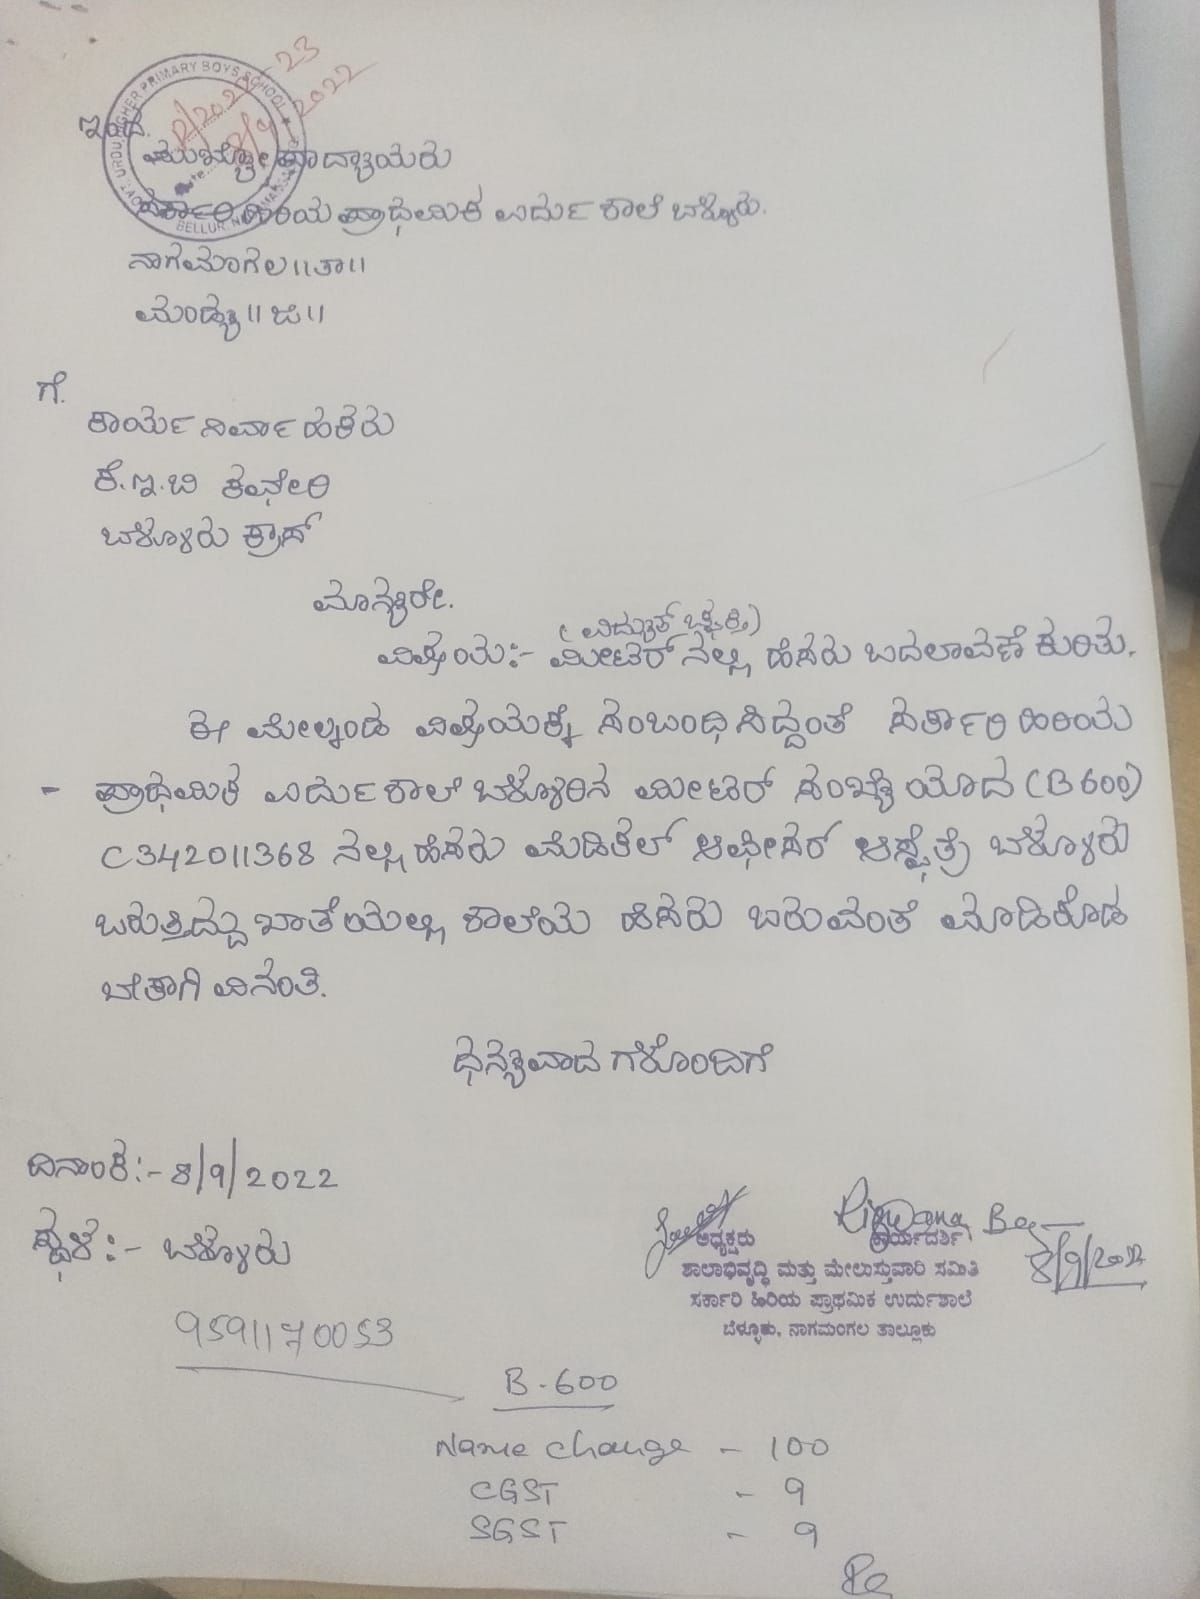 GOVT. URDU HIGHER PRIMARY BOYS SCHOOL
BELLUR,
ಇಂದ.
ಮುಖ್ಯೋಪಾದ್ಯಾಯರು
ಸರ್ಕಾರಿ ಹಿರಿಯ ಪ್ರಾಥಮಿಕ ಉರ್ದು ಶಾಲೆ ಬೆಳ್ಳೂರು.
ನಾಗಮಂಗಲ ॥ತಾ॥
ಮಂಡ್ಯ ॥ಜಿ॥
ಗೆ.
ಕಾರ್ಯ ನಿರ್ವಾಹಕರು
ಕೆ.ಇ.ಬಿ ಕಛೇರಿ
ಬೆಳ್ಳೂರು ಕ್ರಾಸ್
ಮಾನ್ಯರೇ.
(ವಿದ್ಯುತ್ ಚ್ಛಕ್ತಿ)
ವಿಷಯ:- ಮೀಟರ್ ನಲ್ಲಿ ಹೆಸರು ಬದಲಾವಣೆ ಕುರಿತು.
ಈ ಮೇಲ್ಕಂಡ ವಿಷಯಕ್ಕೆ ಸಂಬಂಧಿಸಿದ್ದಂತೆ ಸರ್ಕಾರಿ ಹಿರಿಯ
- ಪ್ರಾಥಮಿಕ ಉರ್ದು ಶಾಲೆ ಬೆಳ್ಳೂರಿನ ಮೀಟರ್ ಸಂಖ್ಯೆಯಾದ (B 600)
C342011368 ನಲ್ಲಿ ಹೆಸರು ಮೆಡಿಕಲ್ ಆಫೀಸರ್ ಆಸ್ಪತ್ರೆ ಬೆಳ್ಳೂರು
ಬರುತ್ತಿದ್ದು ಖಾತೆಯಲ್ಲಿ ಶಾಲೆಯ ಹೆಸರು ಬರುವಂತೆ ಮಾಡಿಕೊಡ
ಬೇಕಾಗಿ ವಿನಂತಿ.
ಧನ್ಯವಾದಗಳೊಂದಿಗೆ
ದಿನಾಂಕ:- 8/9/2022
ಸ್ಥಳ:- ಬೆಳ್ಳೂರು
Rizwana Bee
8/9/2022
ಅಧ್ಯಕ್ಷರು ಕಾರ್ಯದರ್ಶಿ
ಶಾಲಾಭಿವೃದ್ಧಿ ಮತ್ತು ಮೇಲುಸ್ತುವಾರಿ ಸಮಿತಿ
ಸರ್ಕಾರಿ ಹಿರಿಯ ಪ್ರಾಥಮಿಕ ಉರ್ದುಶಾಲೆ
ಬೆಳ್ಳೂರು, ನಾಗಮಂಗಲ ತಾಲ್ಲೂಕು
9591170053
B-600
Name change - 100
CGST - 9
SGST - 9